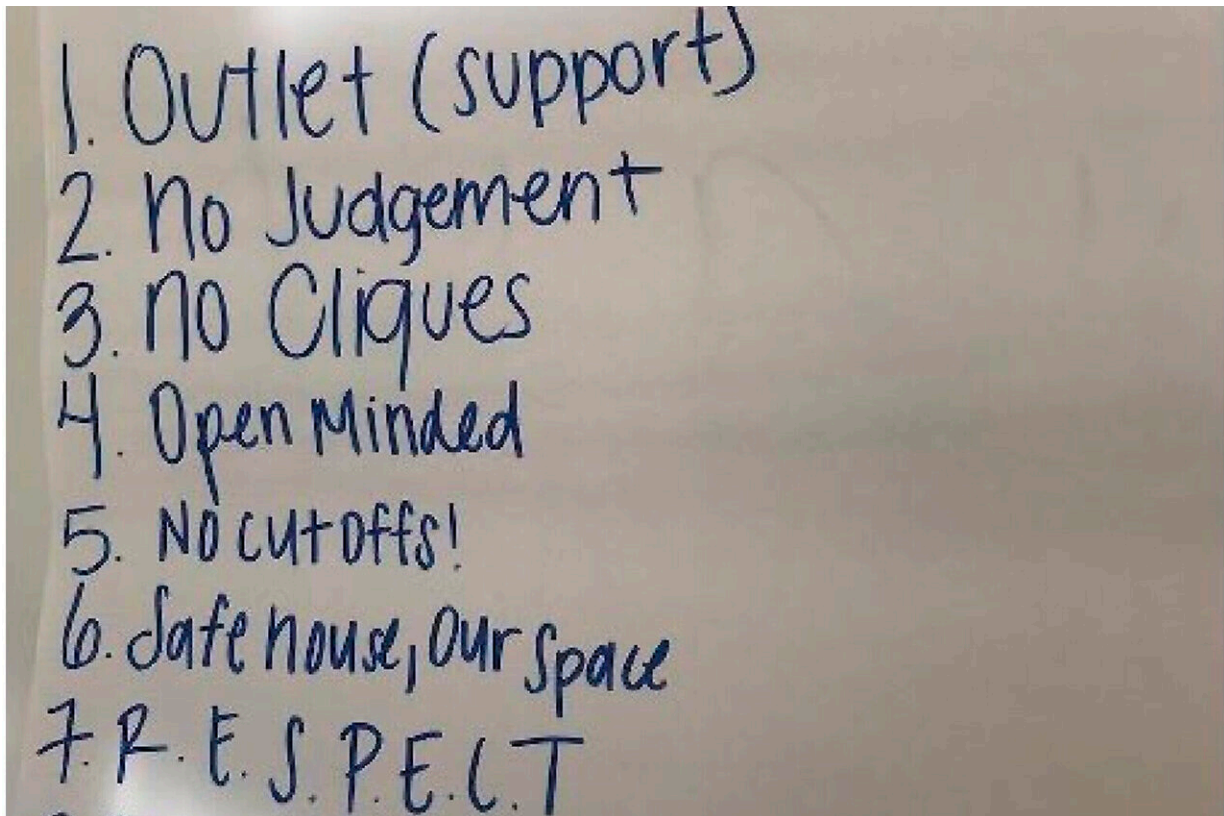 1. Outlet (support)
2. no Judgement
3. no Cliques
4. Open Minded
5. No cutoffs!
6. Safe house, Our Space
7. R.E.S.P.E.C.T